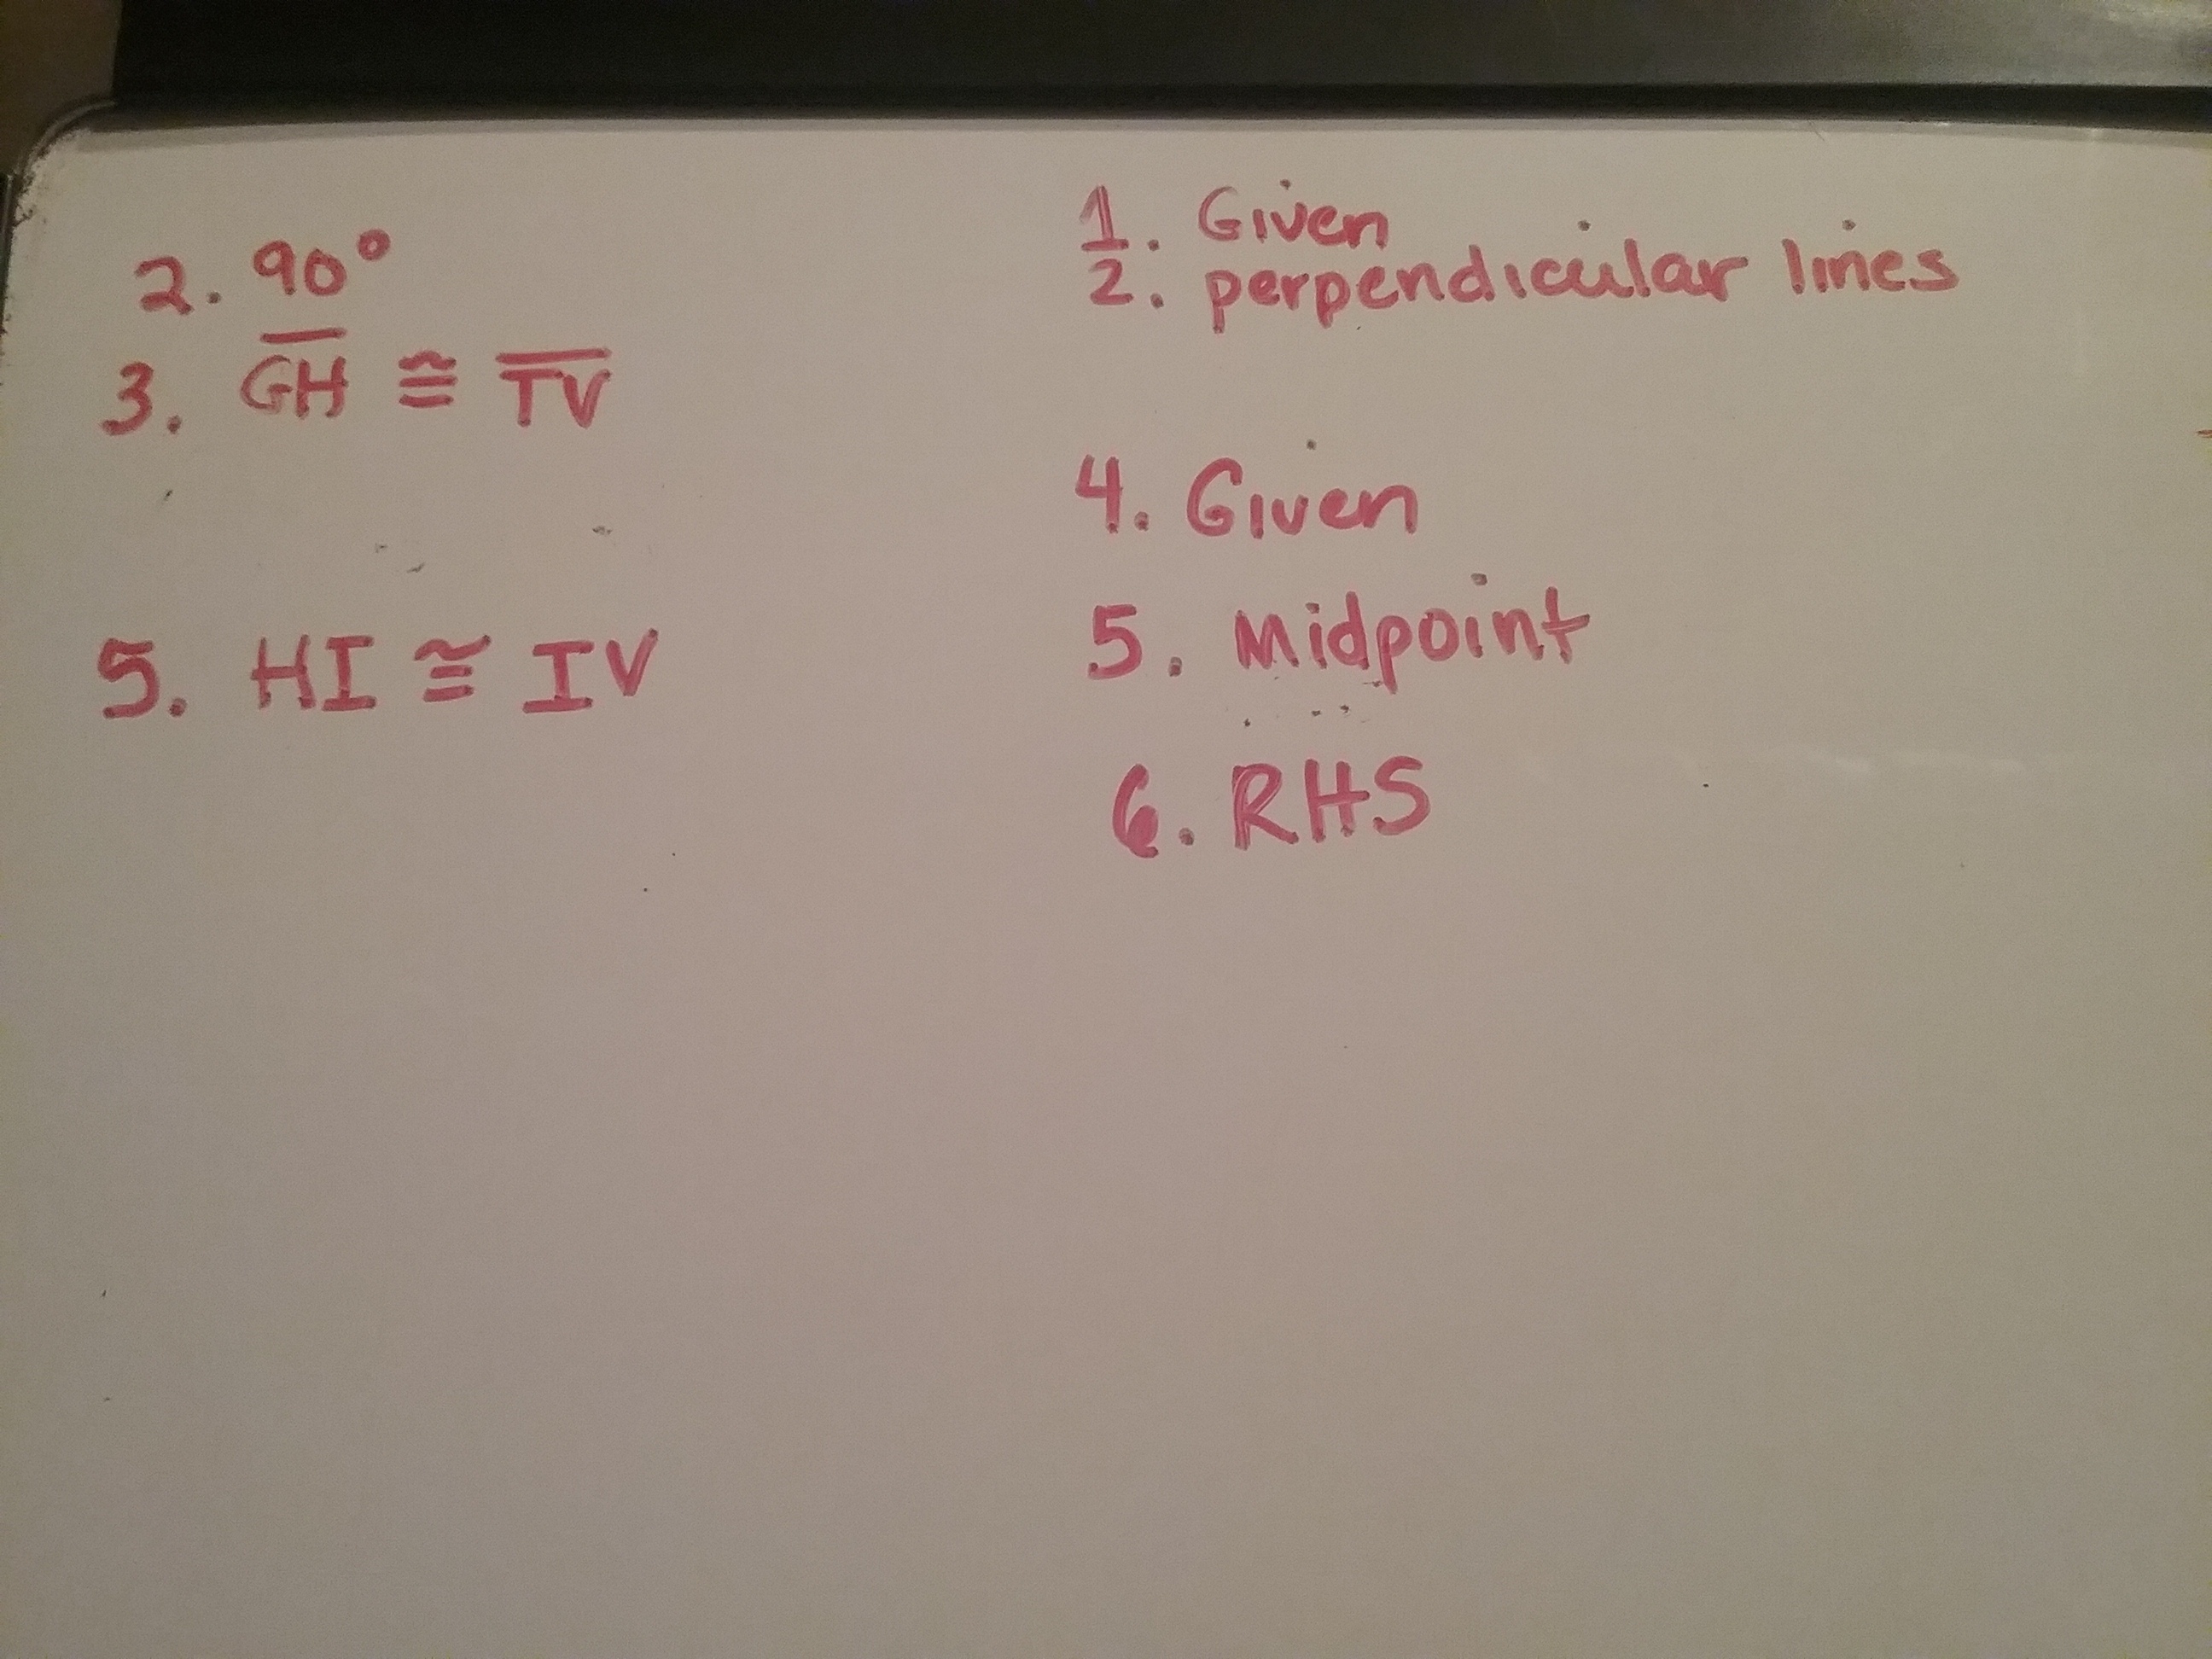 2. 90°
3. G̅H̅ ≅ T̅V̅
5. HI ≅ IV
1. Given
2. perpendicular lines
4. Given
5. Midpoint
6. RHS